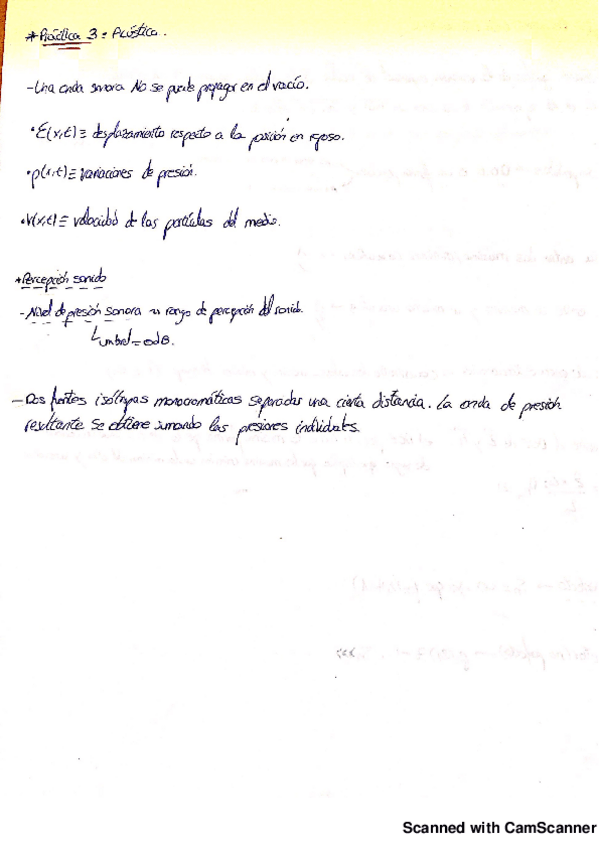 * Práctica 3 = Acústica.
- Una onda sonora No se puede propagar en el vacío.
• E(x,t) ≡ desplazamiento respecto a la posición en reposo.
• p(x,t) ≡ variaciones de presión.
• V(x,t) ≡ velocidad de las partículas del medio.
* Percepción sonido
- Nivel de presión sonora ≈ rango de percepción del sonido.
Umbral = 0dB.
- Dos fuentes isótropas monocromáticas separadas una cierta distancia. La onda de presión
resultante se obtiene sumando las presiones individuales.
Scanned with CamScanner